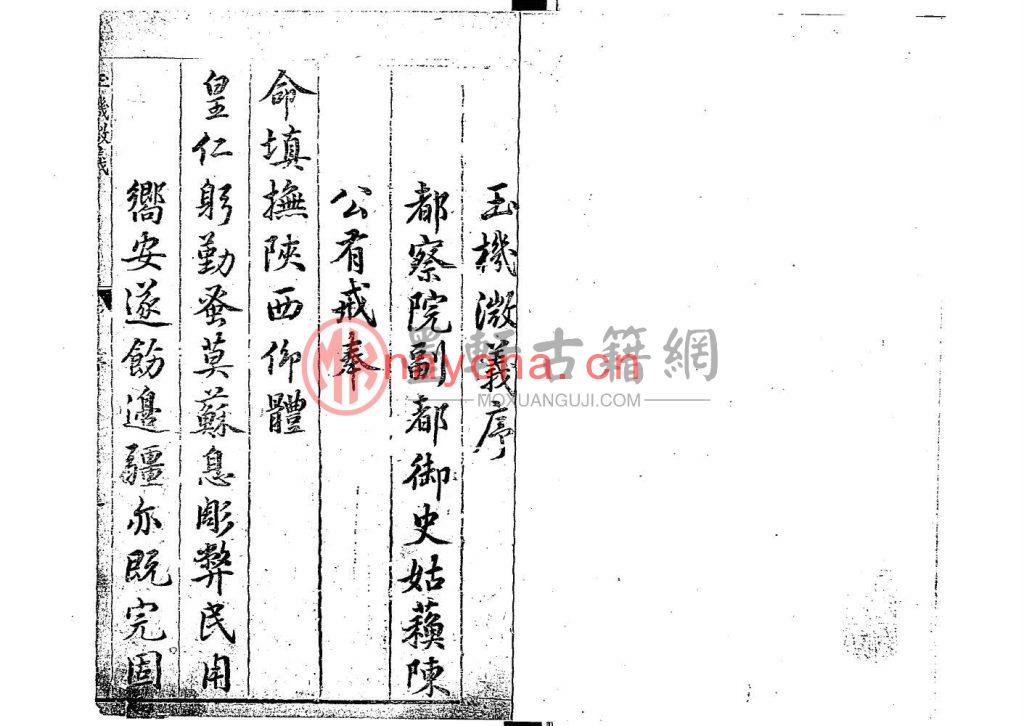 玉機微義序
都察院副都御史姑蘓陳
公有戒奉
命填撫陝西仰體
皇仁躬勤蚤莫蘇息彫弊民用
嚮安遂飭邊疆亦既完固
玉機微義
墨軒古籍網
nayona.cn
MOXUANGUJI.COM